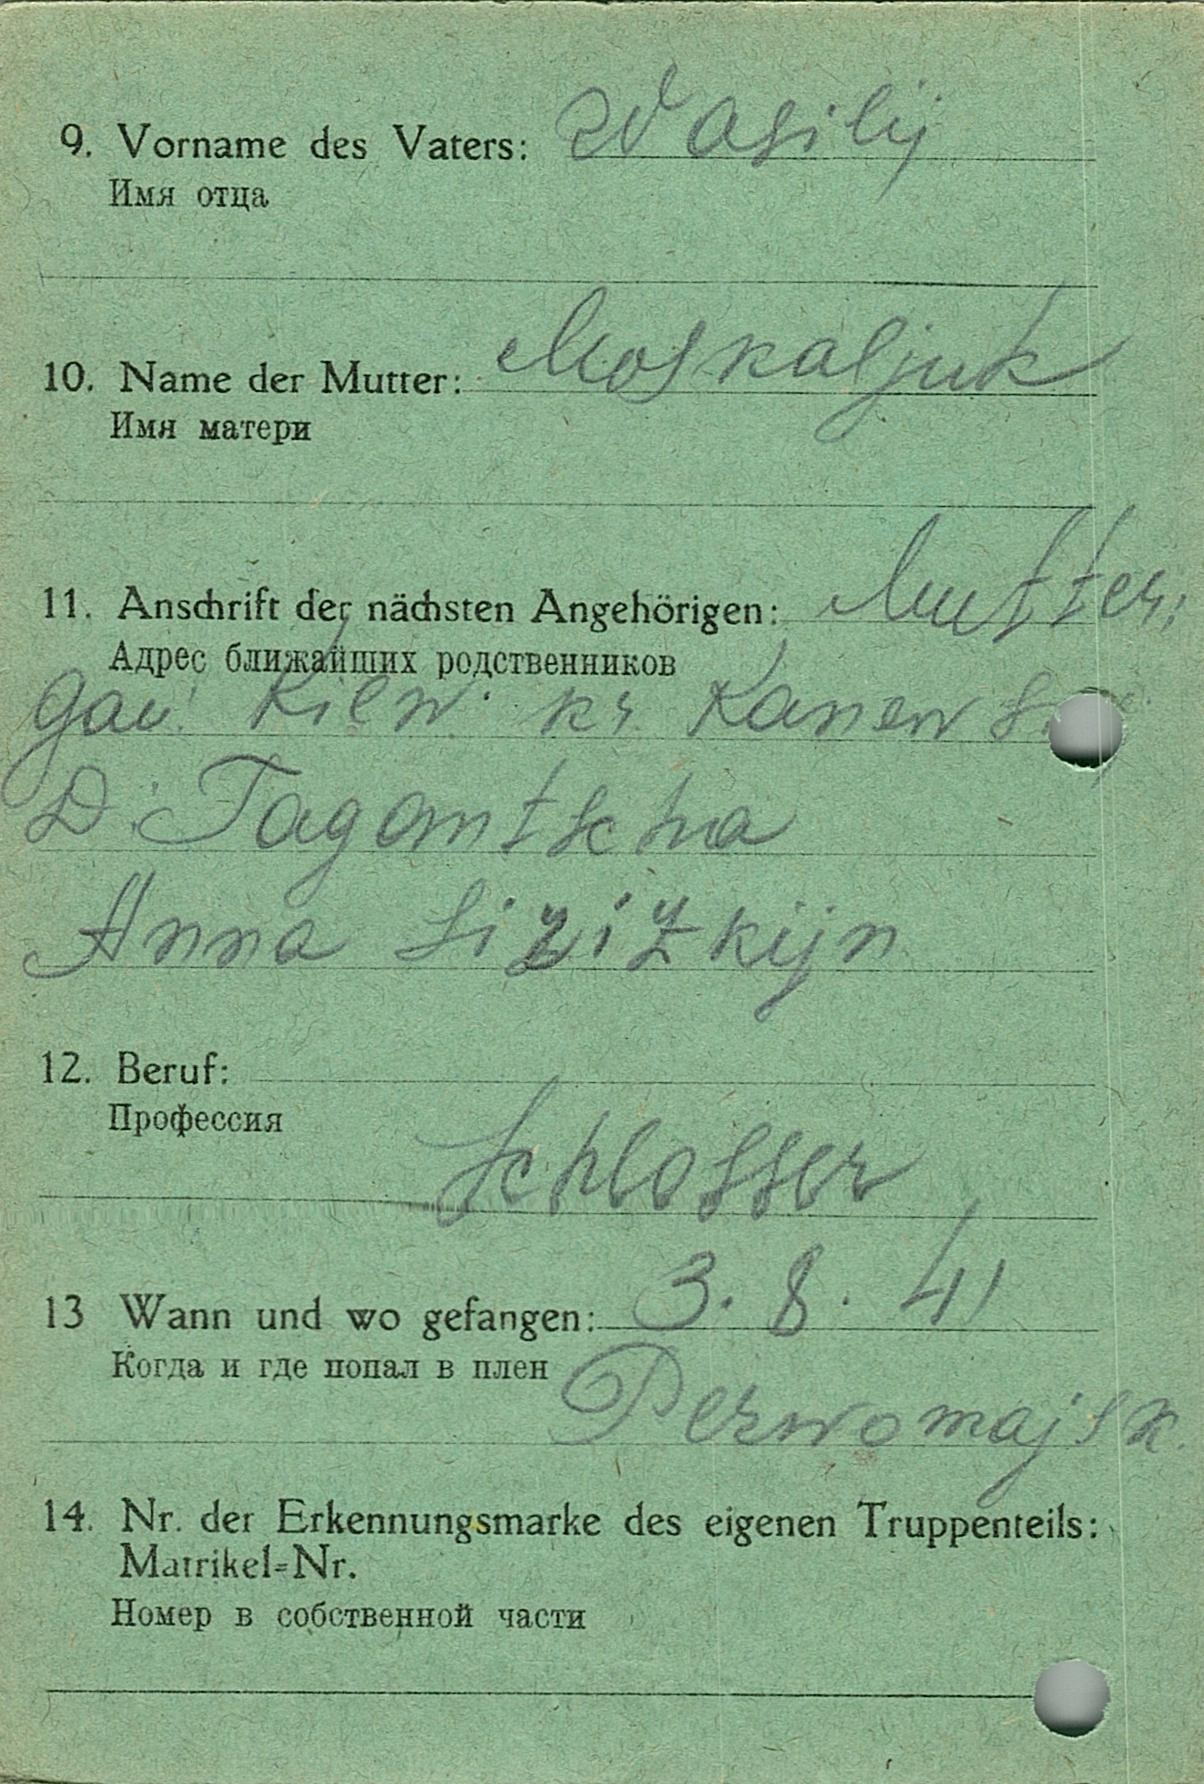 9. Vorname des Vaters: Wasilij
Имя отца
10. Name der Mutter: Moskaljuk
Имя матери
11. Anschrift der nächsten Angehörigen: Mutter:
Адрес ближайших родственников
Gau: Kiew. kr Kanew
D: Tagantscha
Anna Sizizkijn
12. Beruf:
Профессия
Schlosser
13 Wann und wo gefangen: 3. 8. 41
Когда и где попал в плен
Perwomajsk.
14. Nr. der Erkennungsmarke des eigenen Truppenteils:
Matrikel-Nr.
Номер в собственной части